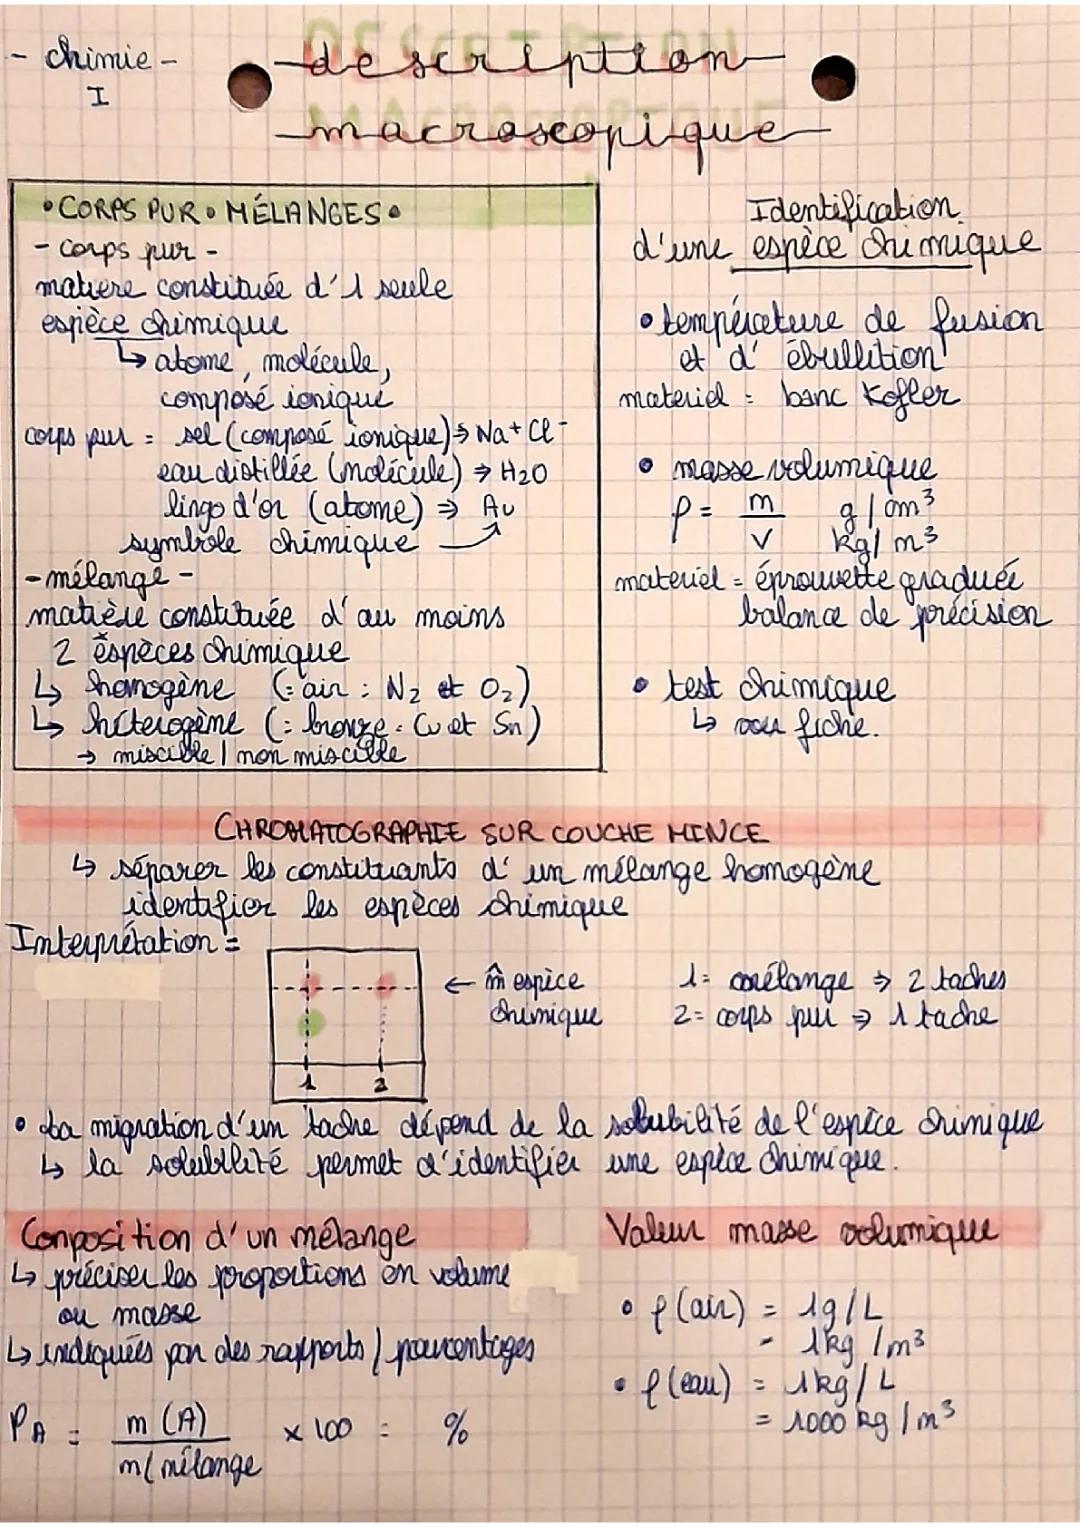 - chimie -
I
description
macroscopique
• CORPS PUR • MÉLANGES •
- corps pur -
matiere constituée d'1 seule
espièce chimique
↳ atome, molécule,
composé ionique
corps pur = sel (composé ionique) → Na+ Cl-
eau distillée (molécule) ⇒ H2O
lingo d'or (atome) ⇒ Au
symbole chimique
- mélange -
matière constituée d'au moins
2 espèces chimique
↳ homogène (= air : N2 et O2)
↳ héterogène (= bronze = Cu et Sn)
→ miscible / non miscible
Identification
d'une espèce chimique
• température de fusion
et d'ébullition
materiel = banc Kofler
• masse volumique
ρ = m/V g/cm3
kg/m3
materiel = éprouvette graduée
balance de précision
• test chimique
↳ voir fiche.
CHROMATOGRAPHIE SUR COUCHE MINCE
↳ séparer les constituants d'un mélange homogène
identifier les espèces chimique
Interprétation =
← m̂ espèce
chimique
1 2
1= mélange ⇒ 2 taches
2= corps pur ⇒ 1 tache
• La migration d'un tache dépend de la solubilité de l'espèce chimique
↳ la solubilité permet d'identifier une espèce chimique.
Composition d'un mélange
↳ préciser les proportions en volume
ou masse
↳ indiqués par des rapports / pourcentages
PA = m(A) / m(mélange x 100 = %
Valeur masse volumique
• ρ(air) = 1g/L
= 1kg/m3
• ρ(eau) = 1kg/L
= 1000 kg/m3